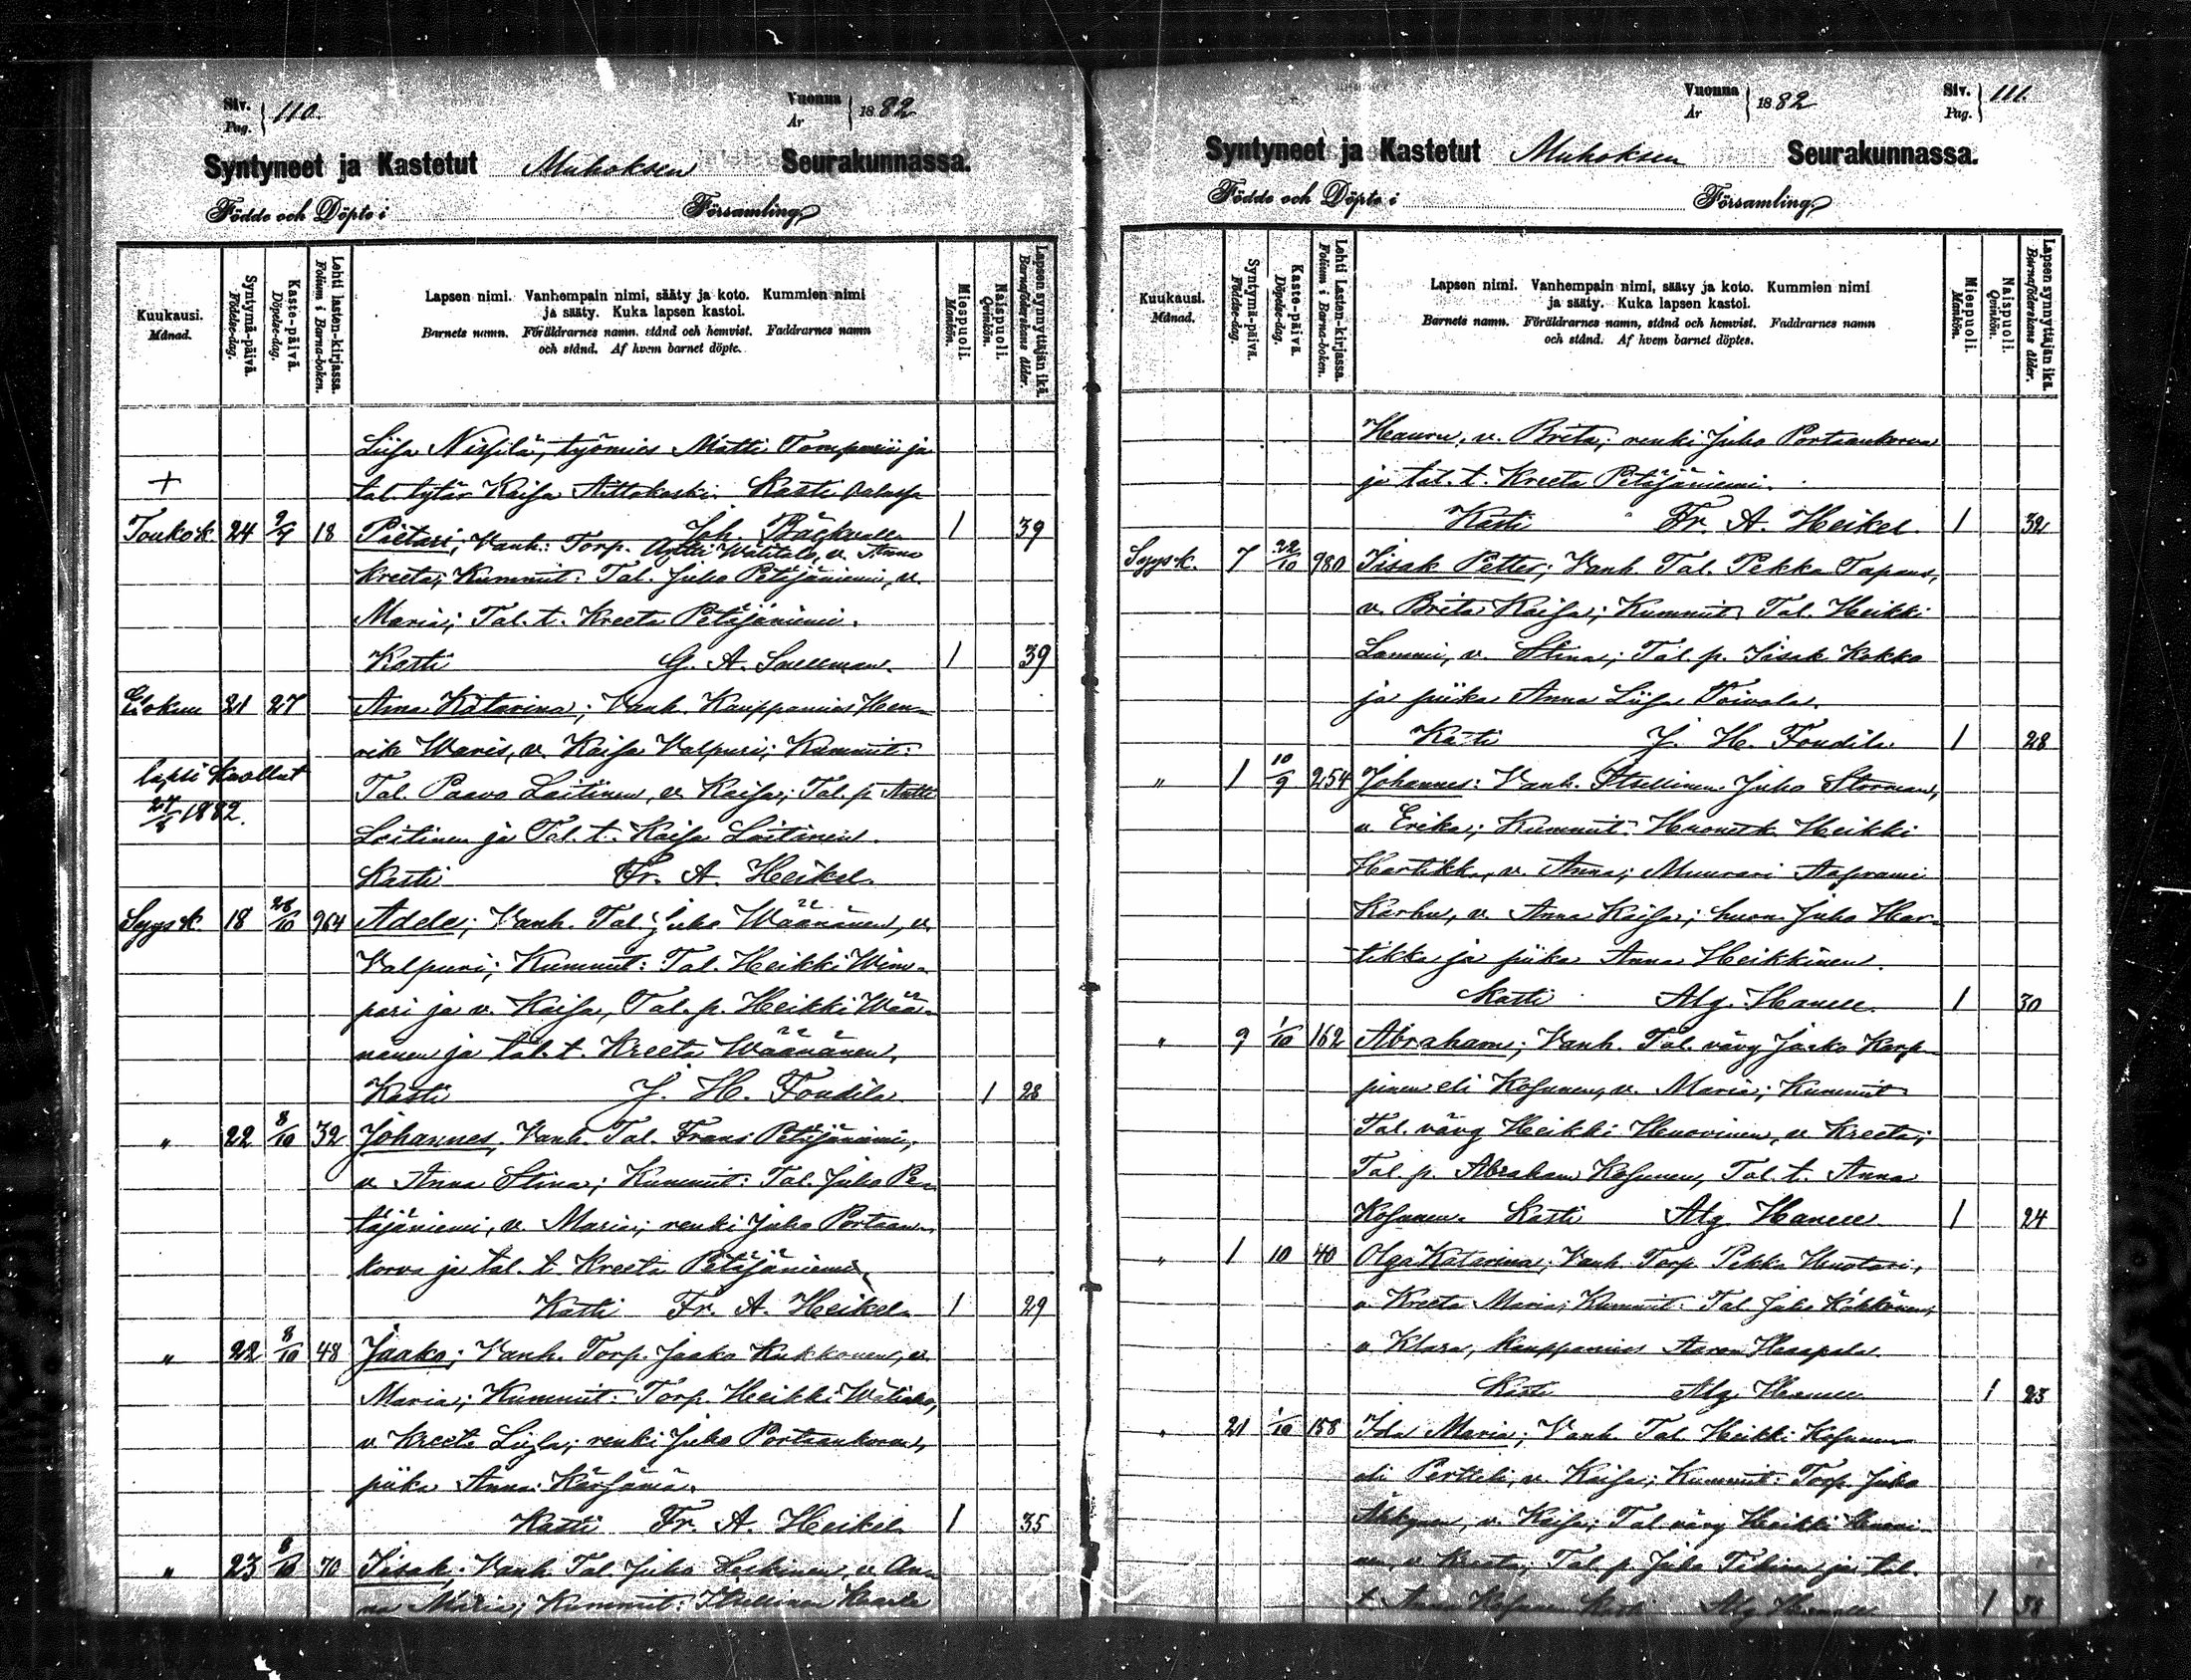 Siv. Pag. } 110.
Vuonna År } 1882
Syntyneet ja Kastetut Muhoksen Seurakunnassa.
Födde och Döpte i Församling
Kuukausi. Månad.
Syntymä-päivä. Födelse-dag.
Kaste-päivä. Döpelse-dag.
Lehti lasten-kirjassa. Folium i Barna-boken.
Lapsen nimi. Vanhempain nimi, sääty ja koto. Kummien nimi
ja sääty. Kuka lapsen kastoi.
Barnets namn. Föräldrarnes namn, stånd och hemvist. Faddrarnes namn
och stånd. Af hvem barnet döpte.
Miespuoli. Mankön.
Naispuoli. Qvinkön.
Lapsen synnyttäjän ikä. Barnaföderskans ålder.
Liisa Nissilä, työmies Matti Tomperi ja
+ tal. tytär Kaisa Aittokoski. Kasti
Joh. Bäckvall 1 39
Toukok. 24 18 Pietari; Vanh: Torp. Antti Wälitalo, v. Anna
Kreeta; Kummit: Tal. Juho Petäjäniemi, v.
Maria; Tal. t. Kreeta Petäjäniemi.
Kasti G. A. Snellman. 1 39
Elokuu 21 27 Anna Katarina; Vanh. Kauppamies Hen-
rik Waris, v. Kaisa Valpuri; Kummit:
lapsi kuollut Tal. Paavo Laitinen, v. Kaisa; Tal. p. Antti
27/8 1882. Laitinen ja Tal. t. Kaisa Laitinen.
Kasti Fr. A. Heikel.
Syysk. 18 28/10 964 Adele; Vanh. Tal. Juho Wäänänen, v.
Valpuri; Kummit: Tal. Heikki Wim-
pari ja v. Kaisa, Tal. p. Heikki Wää-
nänen ja tal. t. Kreeta Wäänänen.
Kasti J. H. Foudila. 1 28
" 22 8/10 32 Johannes, Vanh. Tal. Frans Petäjäniemi,
v. Anna Stina; Kummit: Tal. Juho Pe-
täjäniemi, v. Maria; renki Juho Portaan-
korva ja tal. t. Kreeta Petäjäniemi.
Kasti Fr. A. Heikel. 1 29
" 22 8/10 48 Jaako; Vanh. Torp. Jaako Kukkonen, v.
Maria; Kummit: Torp. Heikki Wälitalo,
v. Kreeta Liisa; renki Juho Portaankorva,
piika Anna Kärsämä.
Kasti Fr. A. Heikel 1 35
" 23 8/10 70 Iisak; Vanh. Tal. Juho Leskinen, v. An-
na Maria; Kummit: Itsellinen Kaarle
Vuonna År } 1882
Siv. Pag. } 111.
Syntyneet ja Kastetut Muhoksen Seurakunnassa.
Födde och Döpte i Församling
Kuukausi. Månad.
Syntymä-päivä. Födelse-dag.
Kaste-päivä. Döpelse-dag.
Lehti Lasten-kirjassa. Folium i Barna-boken.
Lapsen nimi. Vanhempain nimi, sääty ja koto. Kummien nimi
ja sääty. Kuka lapsen kastoi.
Barnets namn. Föräldrarnes namn, stånd och hemvist. Faddrarnes namn
och stånd. Af hvem barnet döptes.
Miespuoli. Mankön.
Naispuoli. Qvinkön.
Lapsen synnyttäjän ikä. Barnaföderskans ålder.
Hauru, v. Brita; renki Juho Portaankorva
ja tal. t. Kreeta Petäjäniemi.
Kasti Fr. A. Heikel. 1 32
Syysk. 7 22/10 980 Iisak Petter; Vanh. Tal. Pekka Tapana,
v. Brita Kaisa; Kummit: Tal. Heikki
Lammi, v. Stina; Tal. p. Iisak Kokko
ja piika Anna Liisa Toivola.
Kasti J. H. Foudila. 1 28
" 1 10/9 254 Johannes: Vanh. Itsellinen Juho Storman,
v. Erika; Kummit: Huonetk. Heikki
Hartikka, v. Anna; Muurari Aaprami
Karhu, v. Anna Kaisa; huon. Juho Har-
tikka ja piika Anna Heikkinen.
Kasti Alg. Hanell. 1 30
" 9 1/10 162 Abraham; Vanh. Tal. vävy Jaako Karp-
pinen eli Kosunen, v. Maria; Kummit
Tal. vävy Heikki Huovinen, v. Kreeta;
Tal. p. Abraham Kosunen, Tal. t. Anna
Kosunen. Kasti Alg. Hanell. 1 24
" 1 10 40 Olga Katarina; Vanh. Torp. Pekka Huotari,
v. Kreeta Maria; Kummit: Tal. Juho Kökkönen,
v. Klara, kauppamies Aaron Haapala.
Kasti Alg. Hanell 1 23
" 21 1/10 158 Ida Maria; Vanh. Tal. Heikki Kosunen
eli Pertteli, v. Kaisa; Kummit: Torp. Juho
v. Kaisa; Tal. vävy Heikki Huovi-
nen, v. Kreeta; Tal. p. Juho Tihinen ja tal.
t. Anna Kosunen Kasti Alg. Hanell 1 38